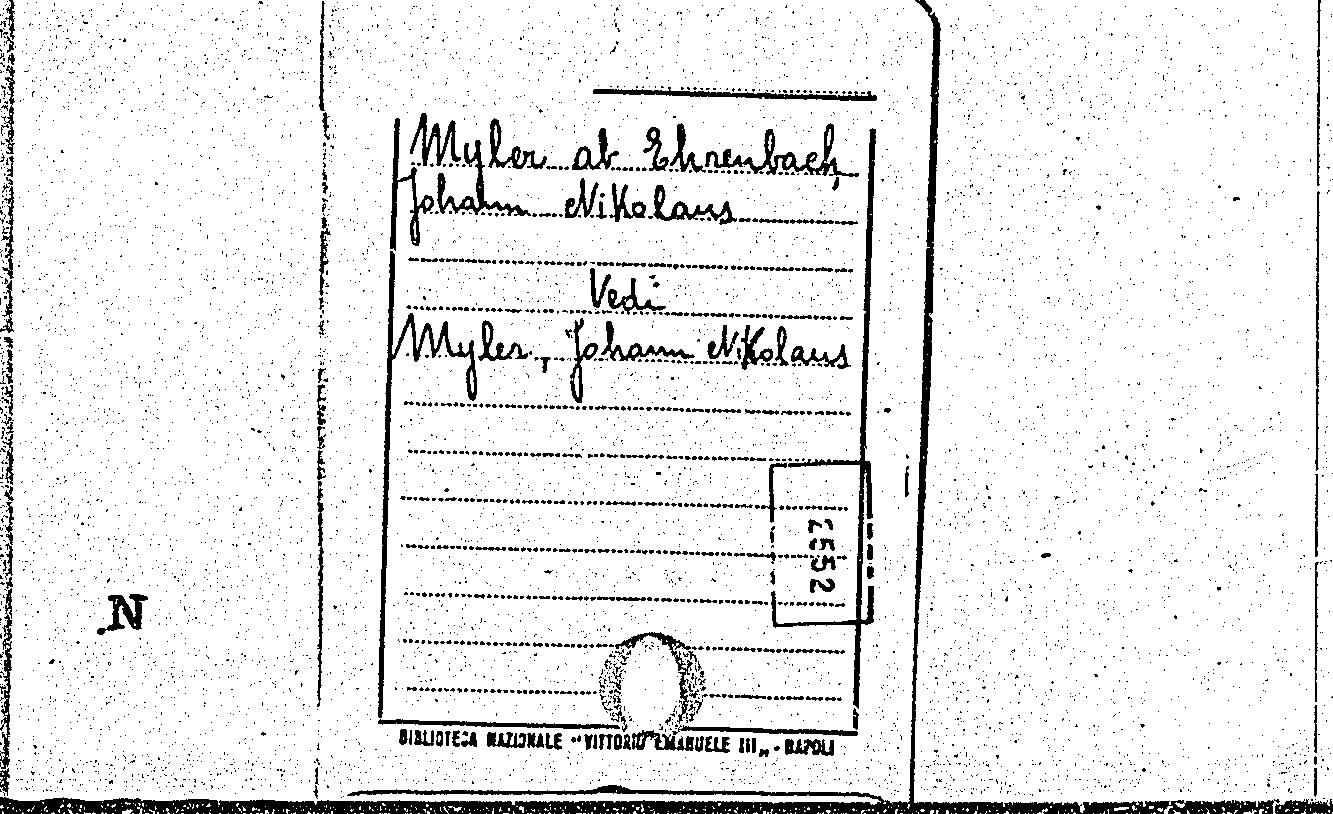 Myler ab Ehrenbach,
Johann Nikolaus
Vedi
Myler, Johann Nikolaus
2552
N
BIBLIOTECA NAZIONALE "VITTORIO EMANUELE III„ - NAPOLI